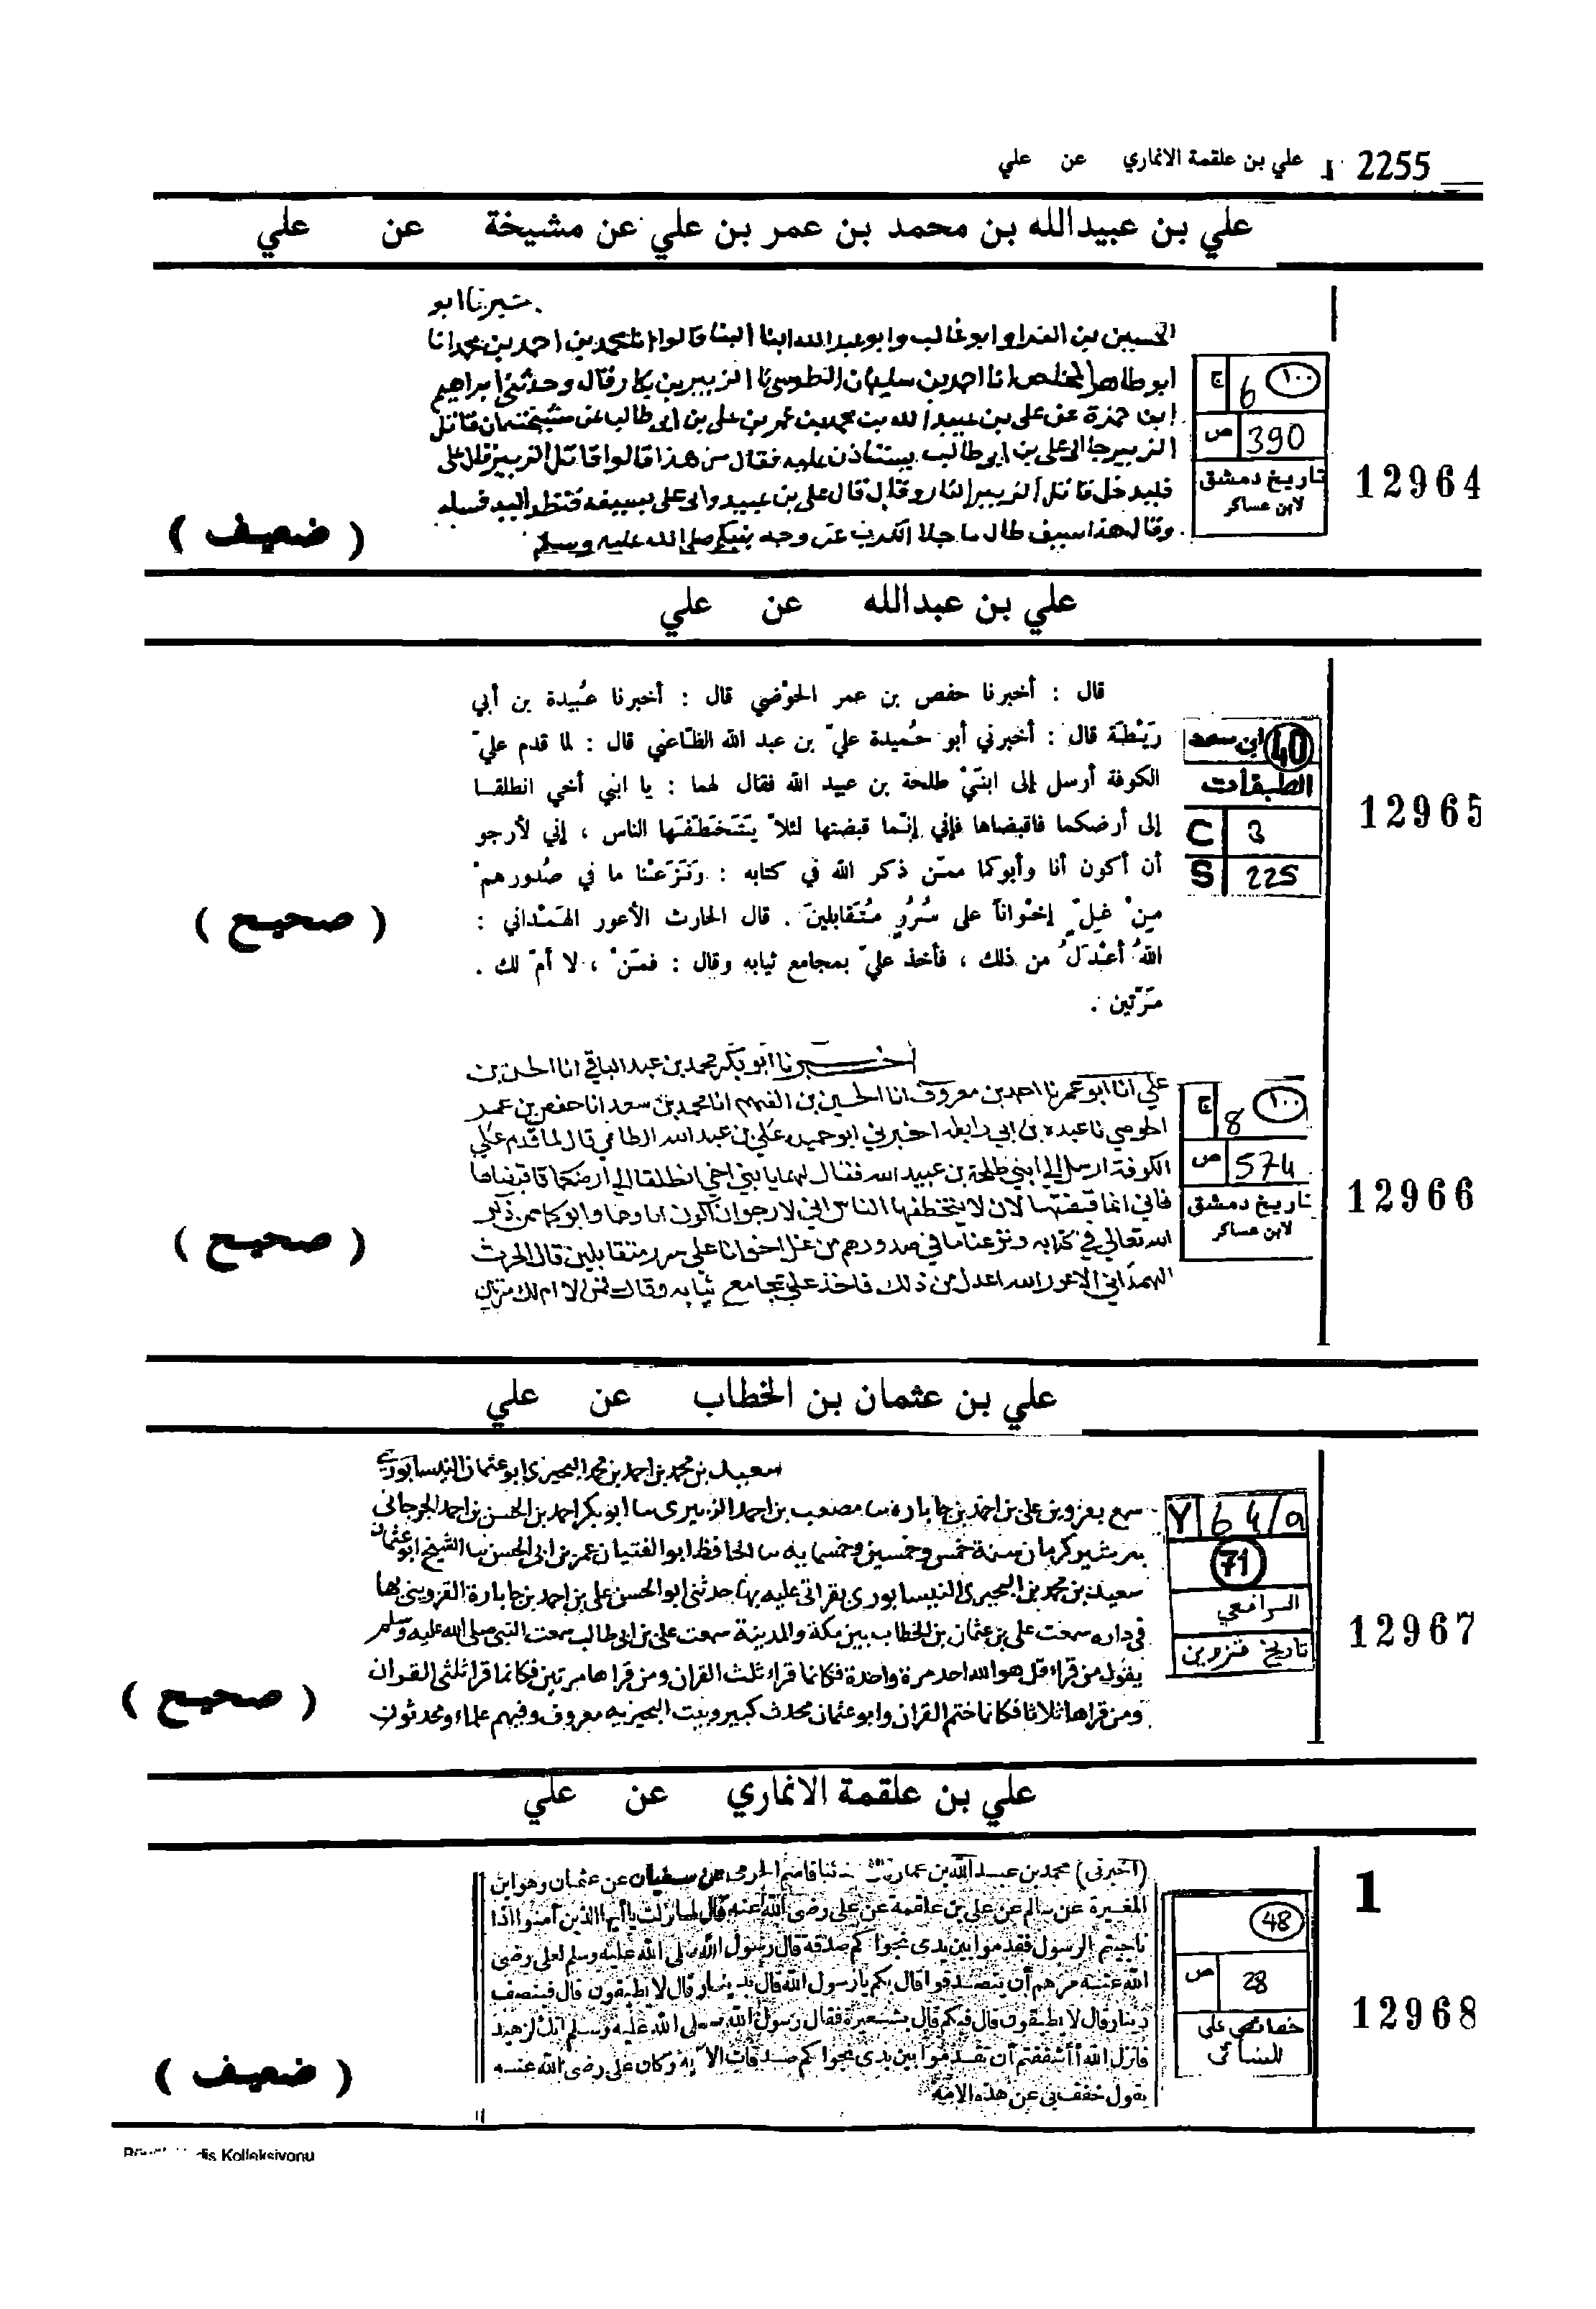 2255 علي بن علقمة الانماري عن علي
علي بن عبيدالله بن محمد بن عمر بن علي عن مشيخة عن علي
ابو
الحسين بن الفرا وابو غالب وابو عبدالله ابنا البنا قالوا انا محمد بن احمد بن محمد انا
ابو طاهر المخلص انا احمد بن سليمان الطوسي نا الزبير بن بكار قال وحدثني ابراهيم
ابن حمزة عن علي بن عبيد الله بن محمد بن عمر بن علي بن ابي طالب عن قاتل
الزبير جا الى علي بن ابي طالب يستاذن عليه فقال من هذا قالوا قاتل الزبير فقال علي
فليدخل قاتل الزبير النار وقال قال علي بن عبيد واتى علي بسيفه فنظر اليه
وقال هذا سيف طال ما جلا الكرب عن وجه نبيكم صلى الله عليه وسلم
١٠٠
ج 6
ص 390
تاريخ دمشق
لابن عساكر
12964
( ضعيف )
علي بن عبدالله عن علي
قال : أخبرنا حفص بن عمر الحوْضي قال : أخبرنا عُبيدة بن أبي
رَيْطَة قال : أخبرني أبو حُميدة عليّ بن عبد الله الظاعني قال : لما قدم عليّ
الكوفة أرسل إلى ابنَيْ طلحة بن عبيد الله فقال لهما : يا ابني أخي انطلقا
إلى أرضكما فاقبضاها فإني إنّما قبضتها لئلاّ يَتَخَطّفَها الناس ، إني لأرجو
أن أكون أنا وأبوكما ممّن ذكر الله في كتابه : ونَزَعْنا ما في صُدورهمْ
مِنْ غِلٍّ إخْواناً على سُرُرٍ مُتَقابلينَ . قال الحارث الأعور الهَمْداني :
اللهُ أعْدَلُ من ذلك ، فأخذ عليّ بمجامع ثيابه وقال : فمَنْ ، لا أمّ لك .
مَرّتين .
40 ابن سعد
الطبقات
C 3
S 225
12965
( صحيح )
اخبرنا ابو بكر محمد بن عبد الباقي انا الحسن بن
علي انا ابو عمر نا احمد بن معروف انا الحسين بن الفهم انا محمد بن سعد انا حفص بن عمر
الحوضي نا عبيده بن ابي رابطه اخبرني ابو حميده علي بن عبد الله الطاعي قال لما قدم علي
الكوفة ارسل الى ابني طلحة بن عبيد الله فقال لهما يا بني اخي انطلقا الى ارضكما فاقبضاها
فاني انما قبضتها لان لا يتخطفها الناس اني لارجو ان اكون انا وابوكما ممن ذكر
الله تعالى في كتابه ونزعنا ما في صدورهم من غل اخوانا على سرر متقابلين قال الحرث
الهمداني الاعور الله اعدل من ذلك فاخذ علي بمجامع ثيابه وقال فمن لا ام لك مرتين
١٠٠
ج 8
ص 574
تاريخ دمشق
لابن عساكر
12966
( صحيح )
علي بن عثمان بن الخطاب عن علي
سعيد بن محمد بن احمد بن محمد البحيري ابو عثمان النيسابوري
سمع بقزوين علي بن احمد بن جابارة نا مصعب بن احمد الزبيري نا ابو بكر احمد بن الحسن بن احمد الجرجاني
بكرمان سنة خمس وخمسين وخمسمايه نا الحافظ ابو الفتيان عمر بن ابي الحسن نا الشيخ ابو عثمان
سعيد بن محمد بن البحيري النيسابوري بقراتي عليه بها حدثني ابو الحسن علي بن احمد بن جابارة القزويني بها
في داره سمعت علي بن عثمان بن الخطاب بين مكة والمدينة سمعت علي بن ابي طالب سمعت النبي صلى الله عليه وسلم
يقول من قراء قل هو الله احد مرة واحدة فكانما قراء ثلث القران ومن قراها مرتين فكانما قرا ثلثي القران
ومن قراها ثلاثا فكانما ختم القران وابو عثمان محدث كبير وبيت البحيريه معروف وفيهم علماء ومحدثون
Y 64/a
71
الرافعي
تاريخ قزوين
12967
( صحيح )
علي بن علقمة الانماري عن علي
(اخبرنى) محمد بن عبد الله بن عمار ثنا قاسم الجرمى عن سفيان عن عثمان وهو ابن
المغيرة عن سالم عن على بن علقمة عن على رضى الله عنه قال لما نزلت يا أيها الذين آمنوا اذا
ناجيتم الرسول فقدموا بين يدى نجواكم صدقة قال رسول الله صلى الله عليه وسلم لعلى رضى
الله عنه مرهم أن يتصدقوا قال بكم يا رسول الله قال بدينار قال لا يطيقون قال فبنصف
دينار قال لا يطيقون قال فبكم قال بشعيرة فقال رسول الله صلى الله عليه وسلم انك لزهيد
فانزل الله أأشفقتم أن تقدموا بين يدى نجواكم صدقات الآية وكان على رضى الله عنه
يقول خفف بى عن هذه الامة
1
48
ص 28
خصائص علي
للنسائي
12968
( ضعيف )
Kolleksiyonu